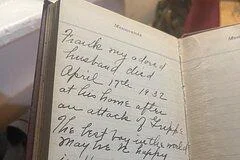 Memoranda
Frank my adored
husband died
April 19th 1932
at his home after
an attack of Grippe
The best boy in the world
May he be happy